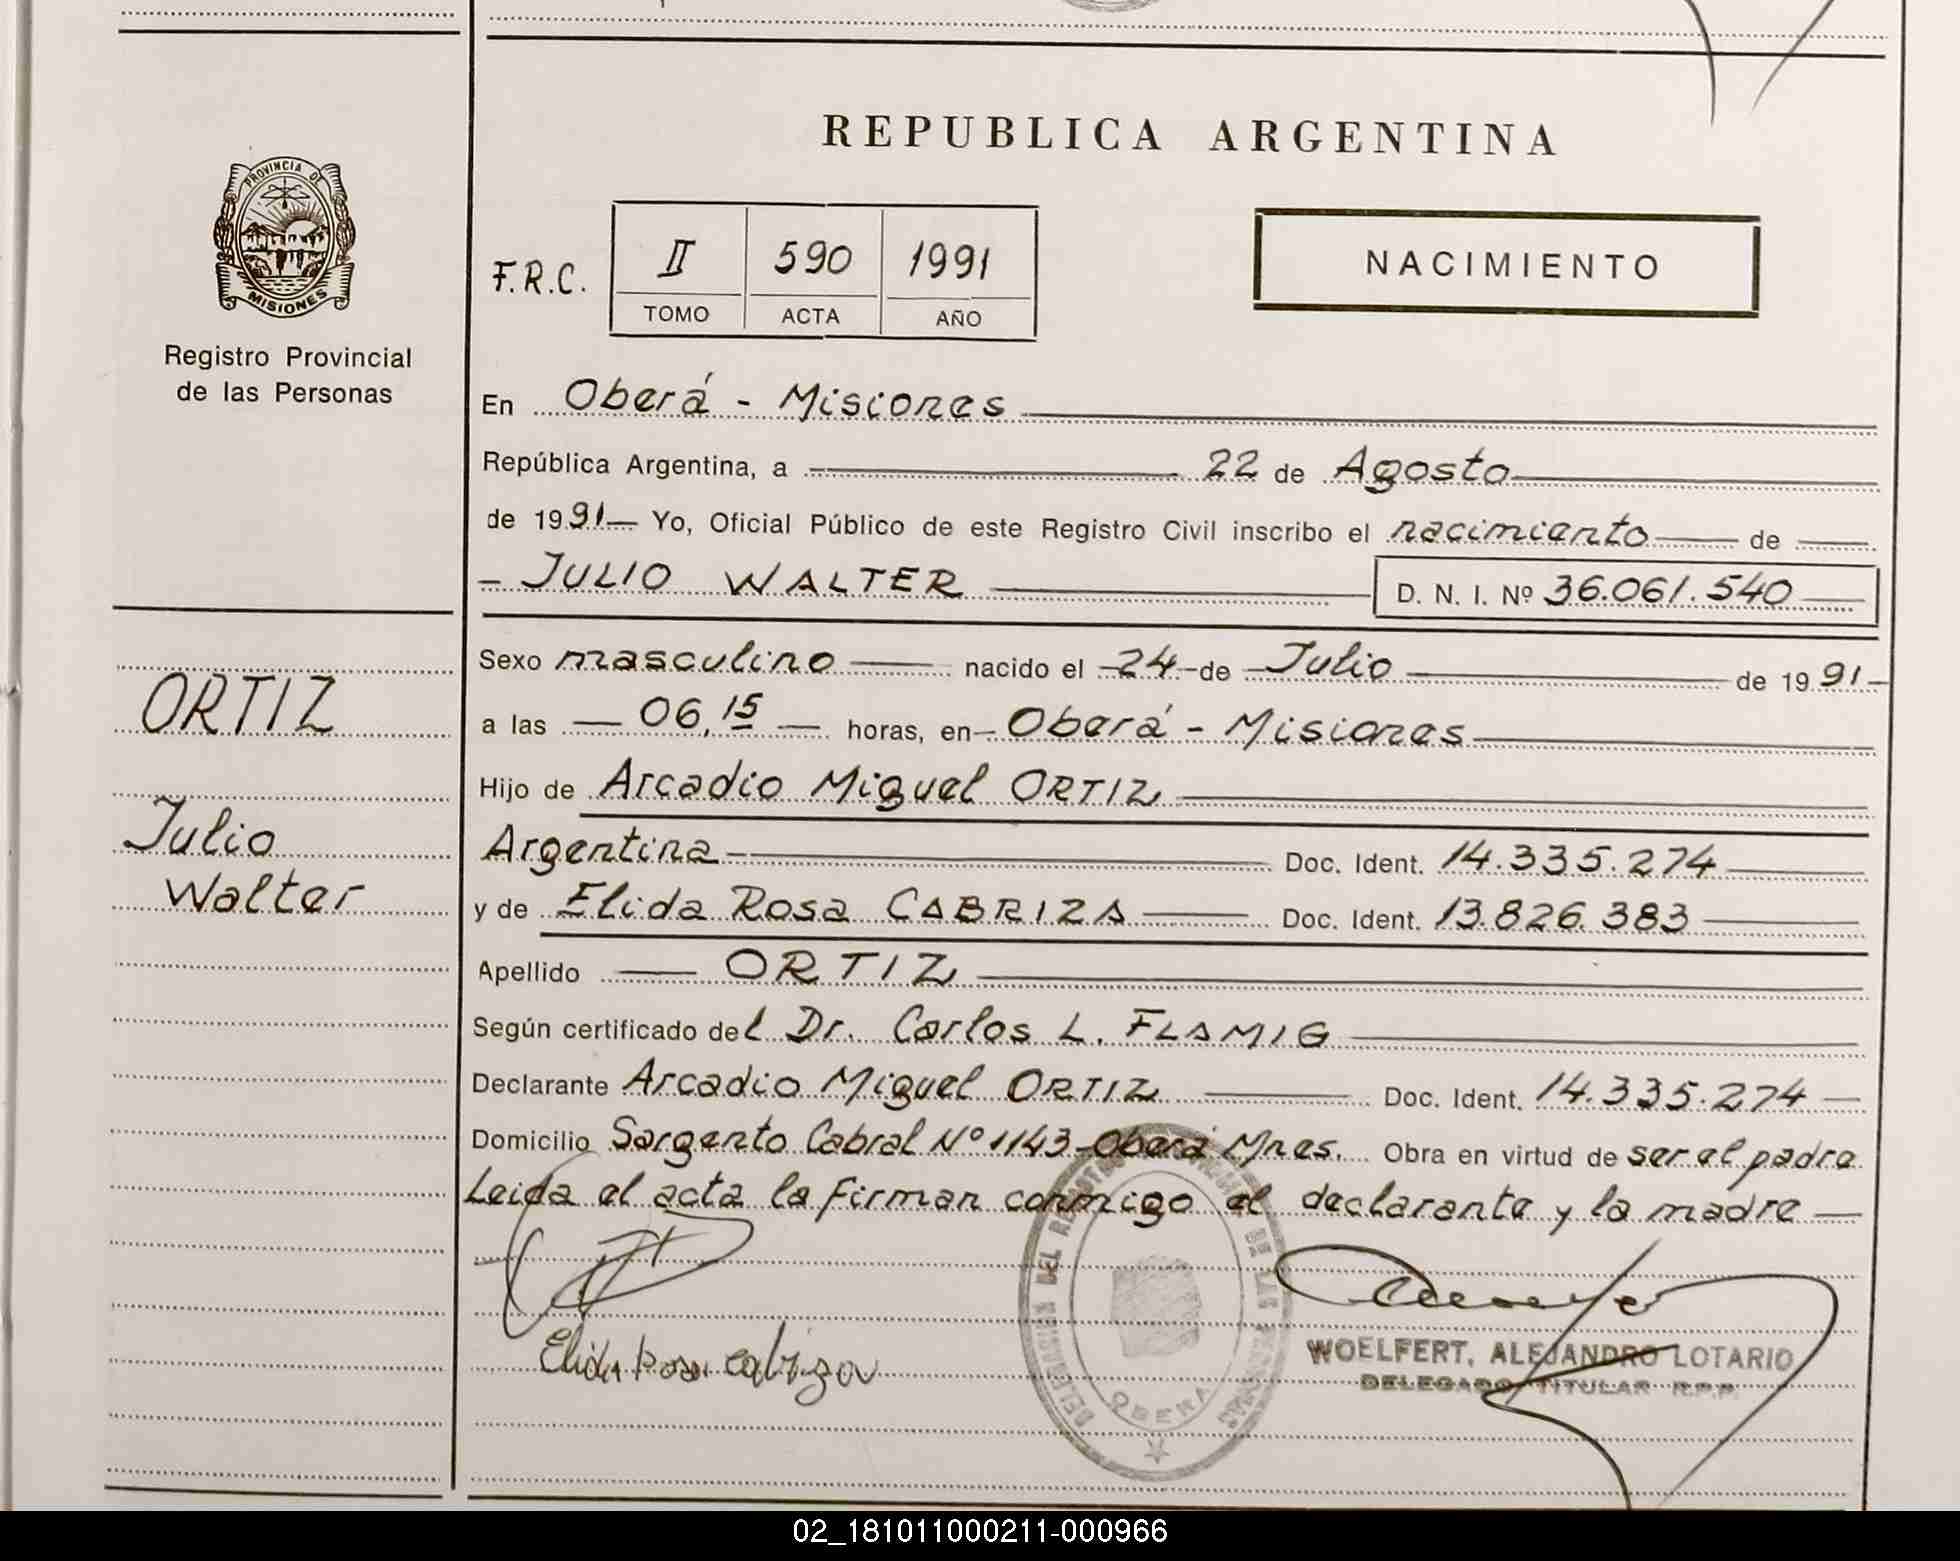 REPUBLICA ARGENTINA
PROVINCIA DE
MISIONES
Registro Provincial
de las Personas
F.R.C.
II 590 1991
TOMO ACTA AÑO
NACIMIENTO
En Oberá - Misiones
República Argentina, a 22 de Agosto
de 1991 Yo, Oficial Público de este Registro Civil inscribo el nacimiento de
- JULIO WALTER D. N. I. Nº 36.061.540
ORTIZ
Julio
Walter
Sexo masculino nacido el 24 de Julio de 1991
a las 06,15 horas, en Oberá - Misiones
Hijo de Arcadio Miguel ORTIZ
Argentina Doc. Ident. 14.335.274
y de Elida Rosa CABRIZA Doc. Ident. 13.826.383
Apellido ORTIZ
Según certificado del Dr. Carlos L. FLAMIG
Declarante Arcadio Miguel ORTIZ Doc. Ident. 14.335.274
Domicilio Sargento Cabral Nº 1143-Oberá Mnes. Obra en virtud de ser el padre
Leida el acta la firman conmigo el declarante y la madre
Elida Rosa cabriza
OBERA
WOELFERT, ALEJANDRO LOTARIO
DELEGADO TITULAR R.P.P.
02_181011000211-000966